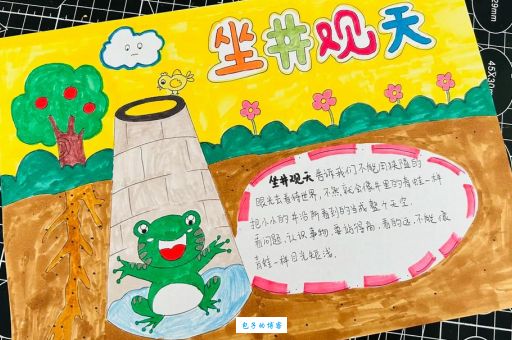 坐井观天
坐井观天告诉我们不能用狭隘的
眼光去看待世界,不然就会像井里的青蛙一样
把小小的井沿所看到的当成整个天空.
看问题,认识事物,要站得高,看的远,不能像
青蛙一样目光短浅.
包子的博客